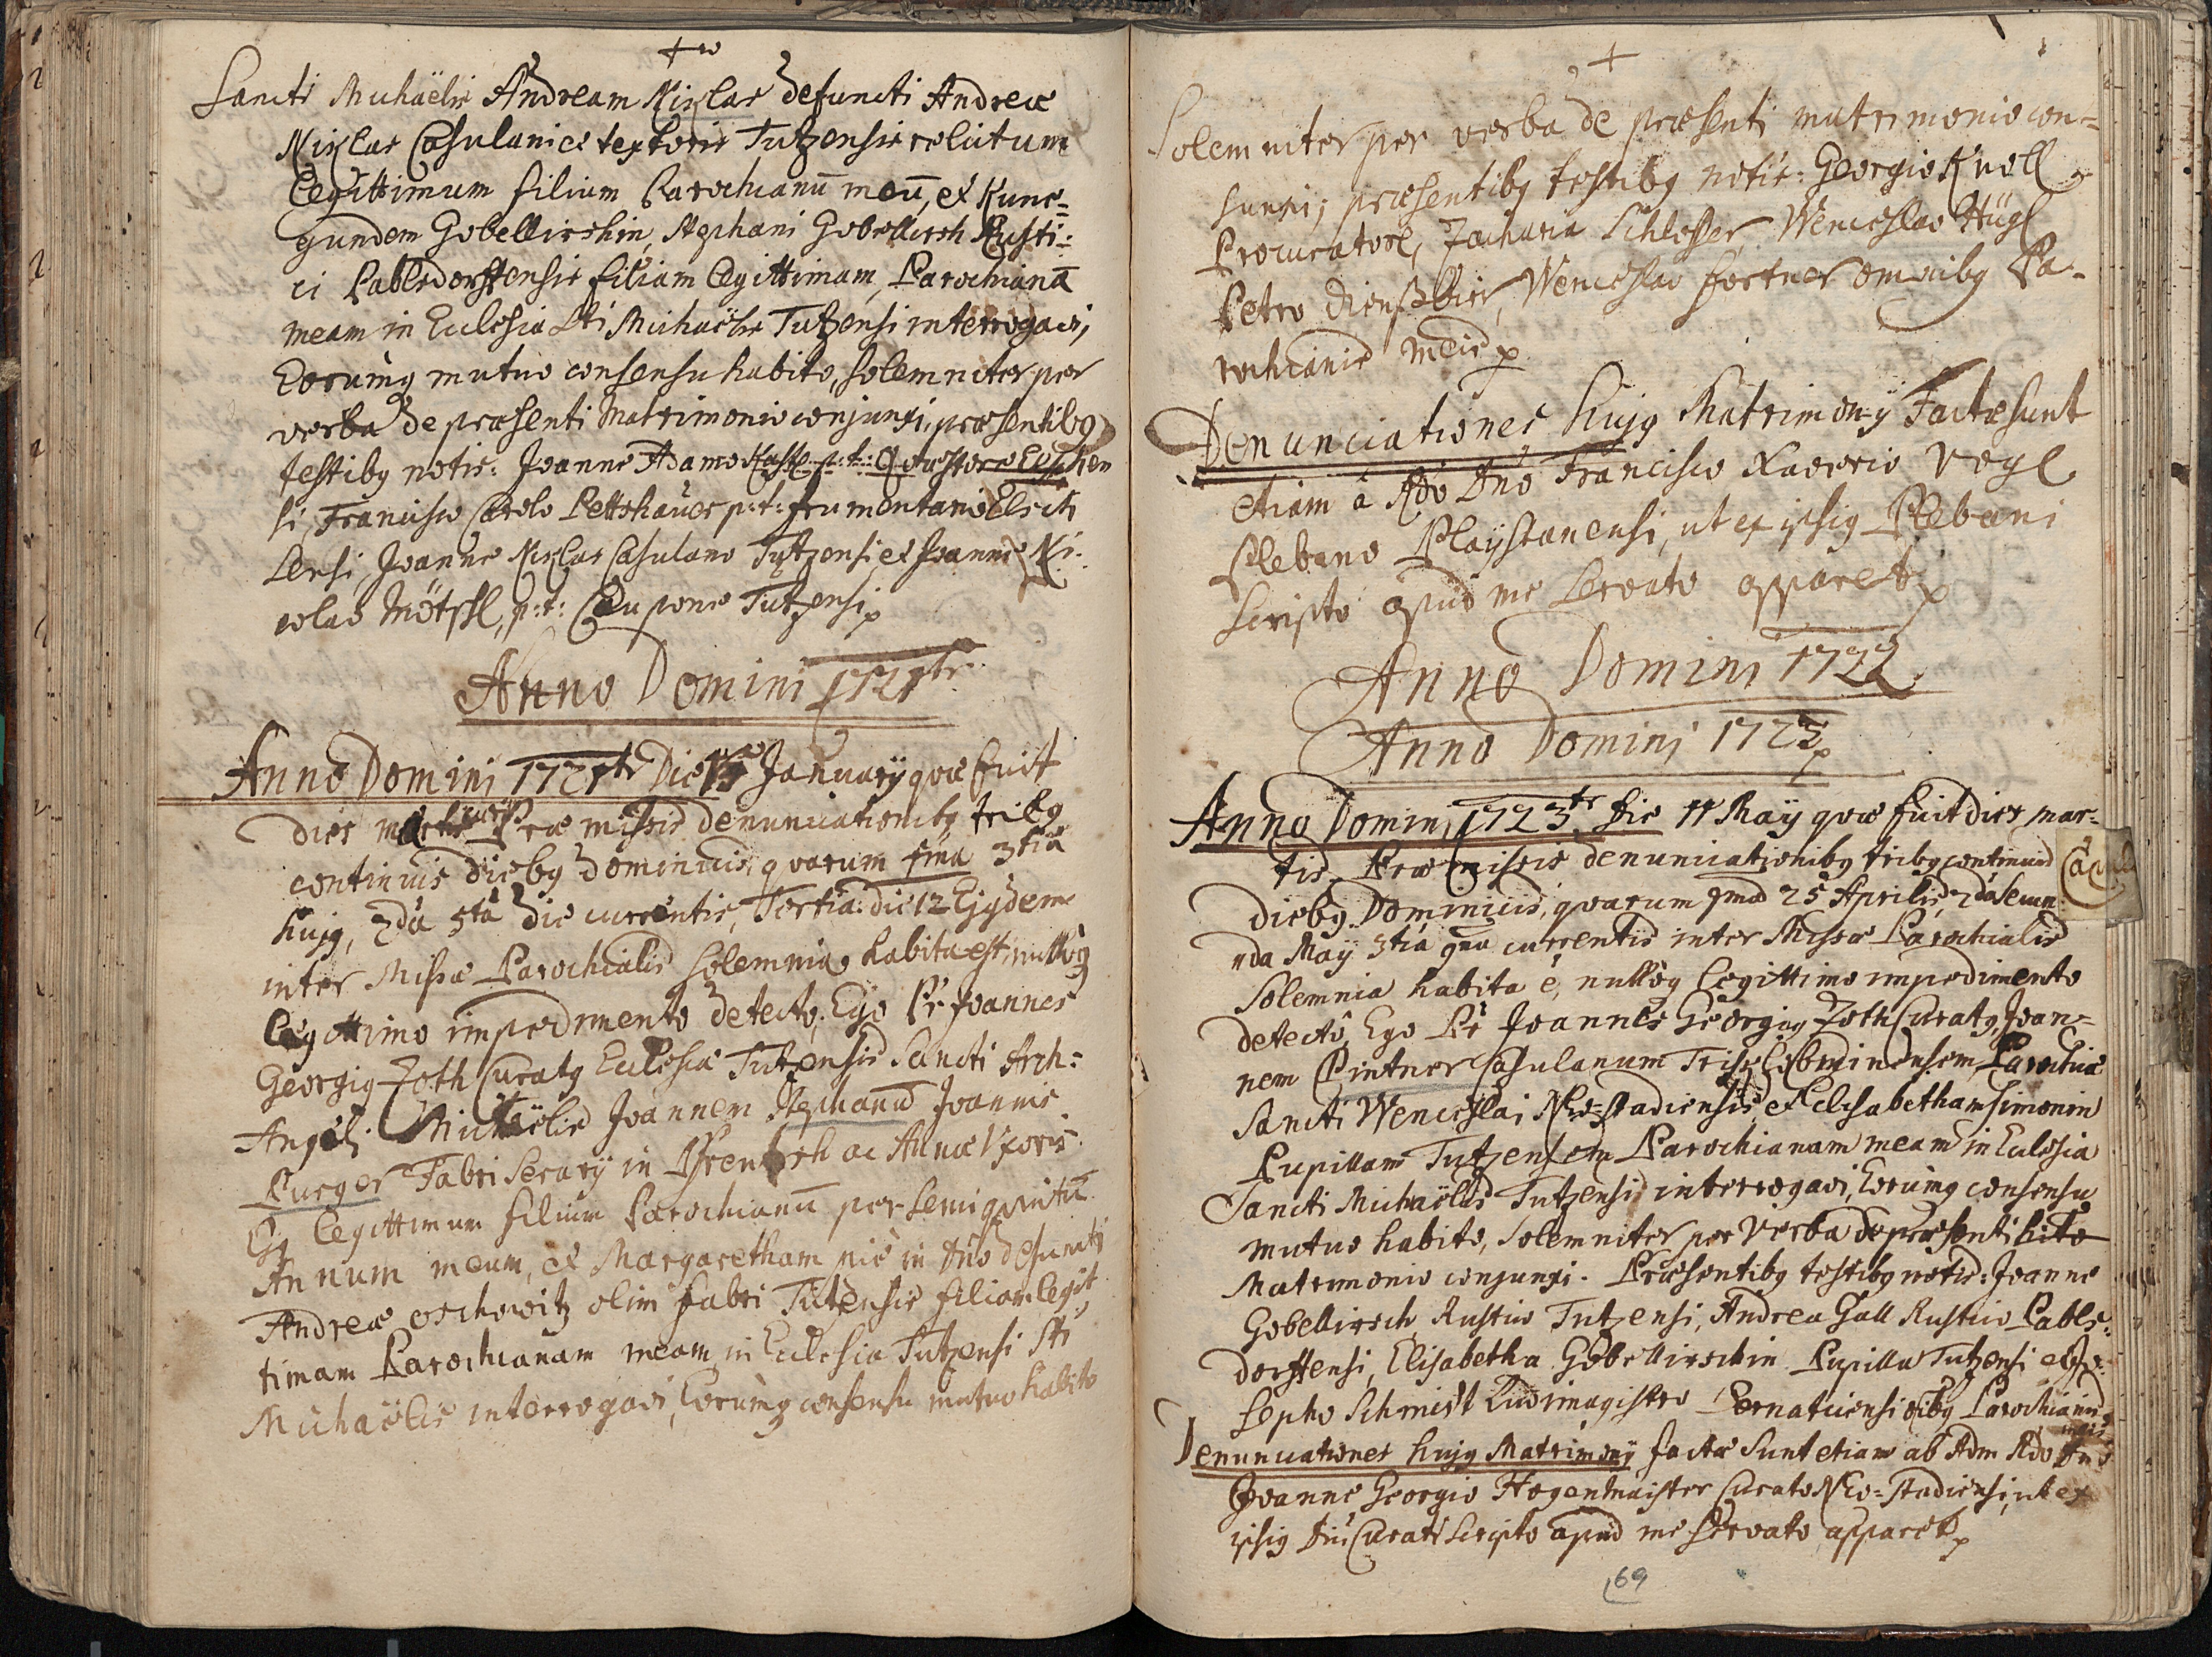 Sancti Michaëlis Andream Nixlas defuncti Andreæ
Nixlas Casulani et textoris Tutzensis relictum
legittimum filium Parochianū meū, et Kune-
gundem Gobellirshin, Stephani Gobellirsh Rusti-
ci Pablsdorffensis filiam legittimam, Parochianā
meam in Ecclesia Sti Michaëlis Tutzensi interrogavi,
Eorumq mutuo consensu habito, solemniter per
verba de præsenti Matrimonio conjunxi, præsentibq
testibq notis: Joanne Adamo p: t: Quæstore
si, Francisco Carolo Pettshauer p: t: frumentario
Joanne Nixlas Casulano Tutzensi, et Joanne Ni-
colao Mötzl, p: t: Caupone Tutzensi p
Anno Domini 1721
Anno Domini 1721 Die Januarÿ quæ fuit
dies Præmissis denunciationibq tribq
continuis diebq Dominicis, quarum 3tia
hujq, 2da 5ta die currentis, Tertia die 12 Ejqdem
inter Missæ Parochialis Solemnia habita est, nulloq
legittimo impedimento detecto, Ego Pr Joannes
Georgiq Zoth Curatq Ecclesiæ Tutzensis Sancti Arch-
Angeli Michaëlis Joannem Stephanū Joannis
Purger Fabri Serarÿ in ac Annæ Vxoris
Ejq legittimum filium Parochianū per
Annum meum, et Margaretham pie in Dno defuncti
Andreæ olim fabri Tutzensis filiam legit-
timam Parochianam meam in Ecclesia Tutzensi Sti
Michaëlis interrogavi, Eorumq consensu mutuo habito
Solemniter per verba de præsenti matrimonio con-
junxi, præsentibq testibq notis: Georgio Knoll
Procuratore, Zacharia Schlosser, Wenceslao Hügl
Petro Wenceslao fortner omnibq Pa-
rochianis meis p
Denunciationes hujq Matrimonÿ Factæ sunt
etiam â Rdo Dno Francisco Xaverio Vogl
Plebano Playstanensi, ut ex ipsiq Plebani
Scripto apud me servato apparet p
Anno Domini 1722
Anno Domini 1723 p
Anno Domini 1723 die 11 May quæ fuit dies mar-
tis Præmissis denunciationibq tribq continuis
diebq Dominicis, quarum 1ma 25 Aprilis, 2da secun-
da May 3tia 9na currentis inter Missæ Parochialis
Solemnia habita ē, nulloq legittimo impedimento
detecto, Ego Pr Joannes Georgiq Zoth Curatq, Joan-
nem Pintner Casulanum Parochiæ
Sancti Wenceslai Neo-stadiensis, et Elisabetham Simonin
Pupillam Tutzensem Parochianam meam in Ecclesia
Sancti Michaëlis Tutzensi interrogavi, Eorumq consensu
mutuo habito, Solemniter per Verba de præsenti
Matrimonio conjunxi. Præsentibq testibq notis: Joanne
Gobellirsch Rustico Tutzensi, Andrea Gall Rustico Pabls-
dorffensi, Elisabetha Gobellirschin Pupilla Tutzensi et Jo-
sepho Schmidt Ludimagistro Pernaticensi oibq Parochianis
meis
Denunciationes hujq Matrimonÿ factæ sunt etiam ab Adm Rdo Dno
Joanne Georgio Hogenmaister Curato Neo-stadiensi, ut ex
ipsiq Dni Curati Scripto apud me servato apparet p
69